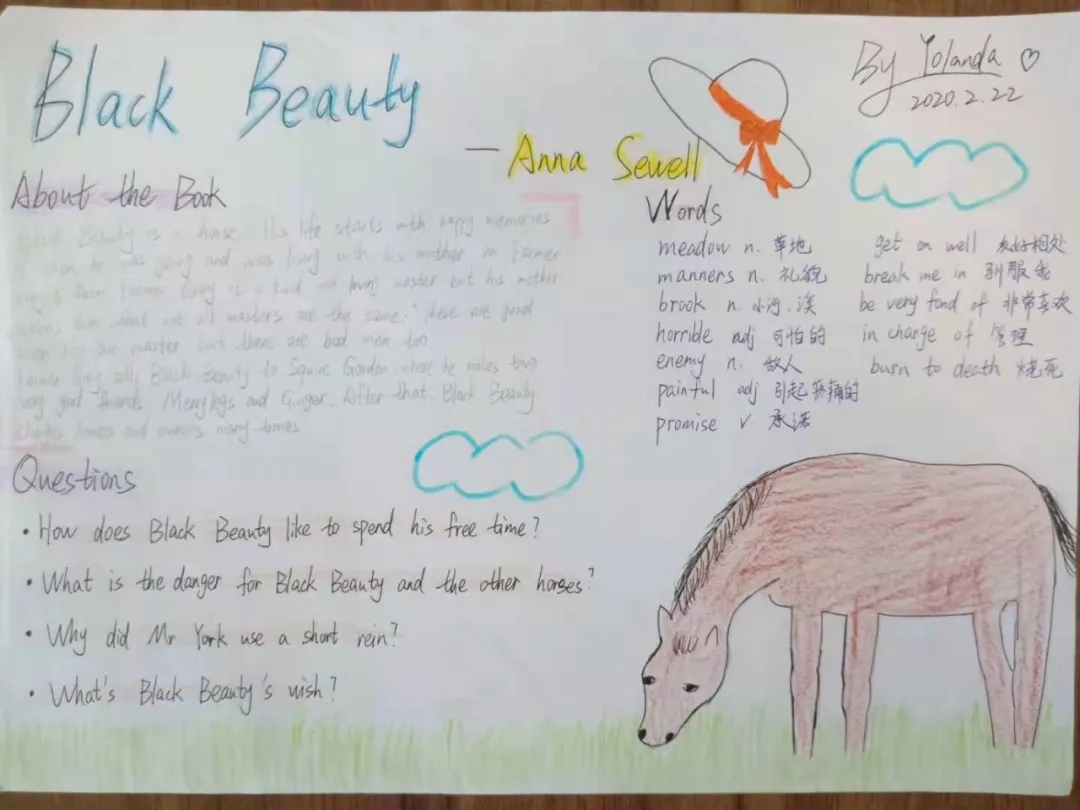 Black Beauty
— Anna Sewell
By Yolanda
2020.2.22
About the Book
Black Beauty is a horse. His life starts with happy memories
of when he was young and was living with his mother on Farmer
Grey's farm. Farmer Grey is a kind and loving master but his mother
that not all masters are the same. "There are good
men like our master but there are bad men too.
Farmer Grey sells Black Beauty to Squire Gordon where he makes two
very good friends, Merrylegs and Ginger. After that, Black Beauty
changes homes and owners many times.
Questions
• How does Black Beauty like to spend his free time?
• What is the danger for Black Beauty and the other horses?
• Why did Mr York use a short rein?
• What's Black Beauty's wish?
Words
meadow n. 草地
manners n. 礼貌
brook n. 小河.溪
horrible adj 可怕的
enemy n. 敌人
painful adj 引起疼痛的
promise v 承诺
get on well 友好相处
break me in 驯服我
be very fond of 非常喜欢
in charge of 管理
burn to death 烧死